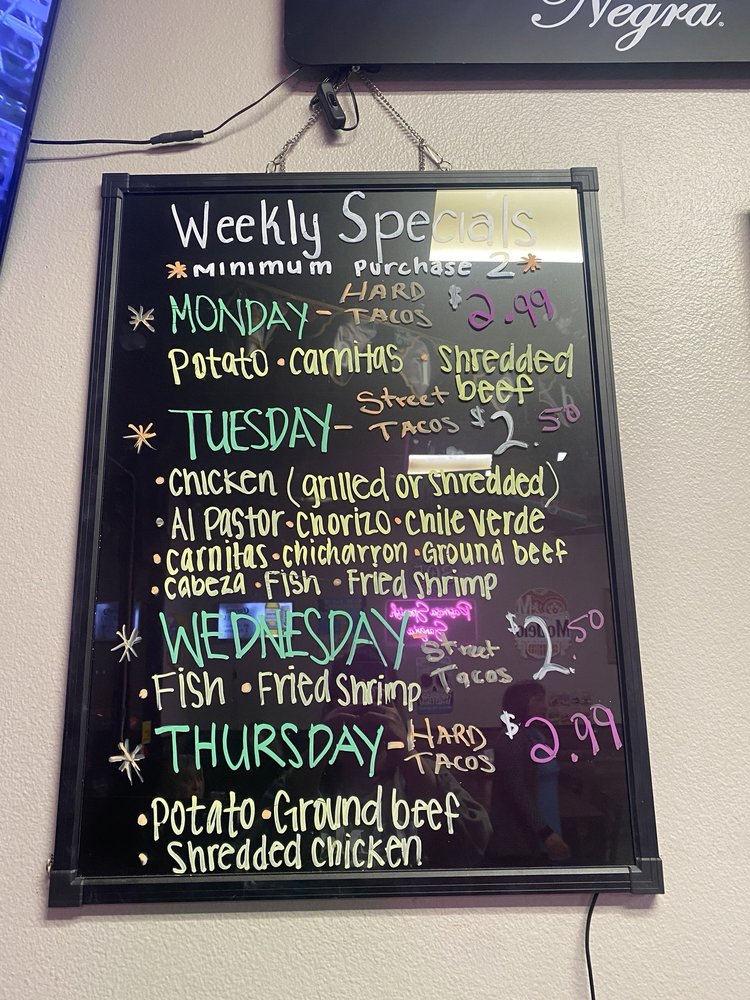 Negra.
Weekly Specials
*Minimum Purchase 2*
* MONDAY - HARD TACOS $2.99
Potato • Carnitas • Shredded beef
* TUESDAY - Street TACOS $2.50
• Chicken (grilled or shredded)
• Al Pastor • Chorizo • Chile Verde
• Carnitas • Chicharron • Ground beef
• Cabeza • Fish • Fried Shrimp
* WEDNESDAY Street Tacos $2.50
• Fish • Fried Shrimp
* THURSDAY - HARD TACOS $2.99
• Potato • Ground beef
• Shredded Chicken